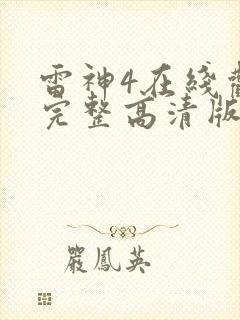 雷神4在线
完整高清版
嚴鳳英